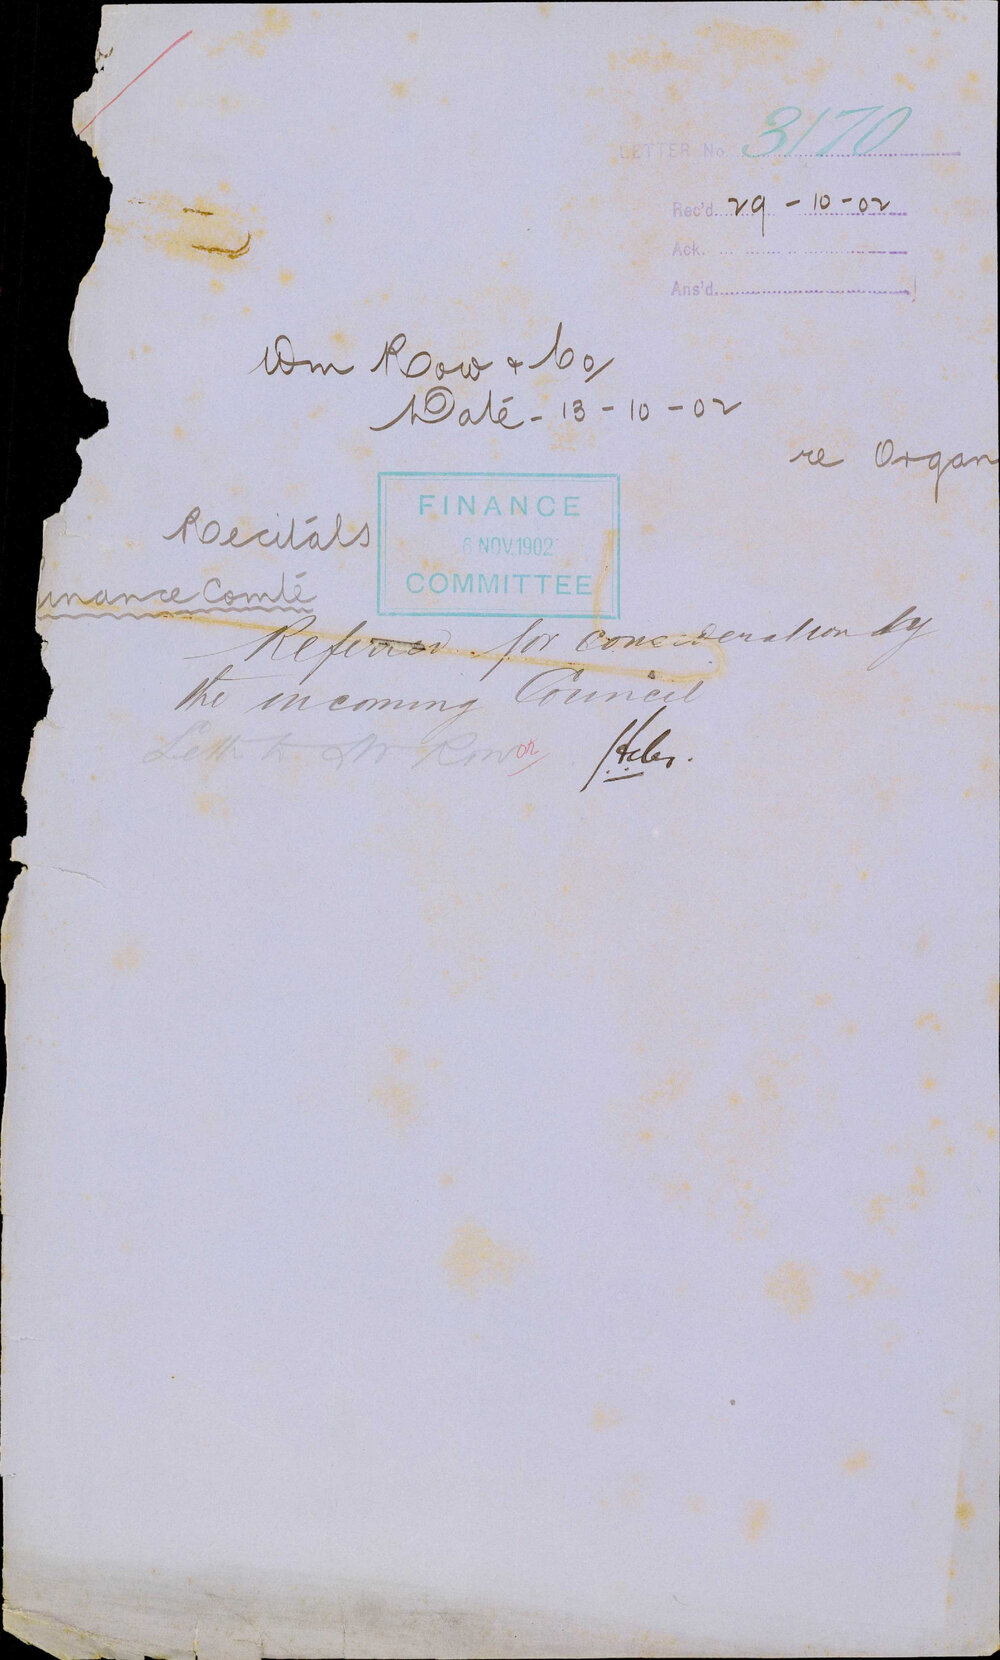 LETTER No 3170
Rec'd 29-10-02
Ack.
Ans'd
Wm Row & Co/
Date - 13-10-02
re Organ
Recitals
FINANCE
6 NOV. 1902
COMMITTEE
inance Comte
Referred for consideration by
the incoming Council